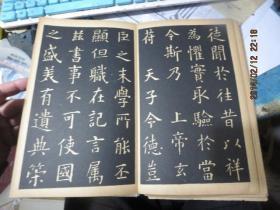 徒聞於往昔以祥
為懼實取驗於當
今斯乃 上帝玄
符 天子令德豈
臣之末學所能丕
顯但職在記言属
兹書事不可使國
之盛美有遺典策
02/12 22:18